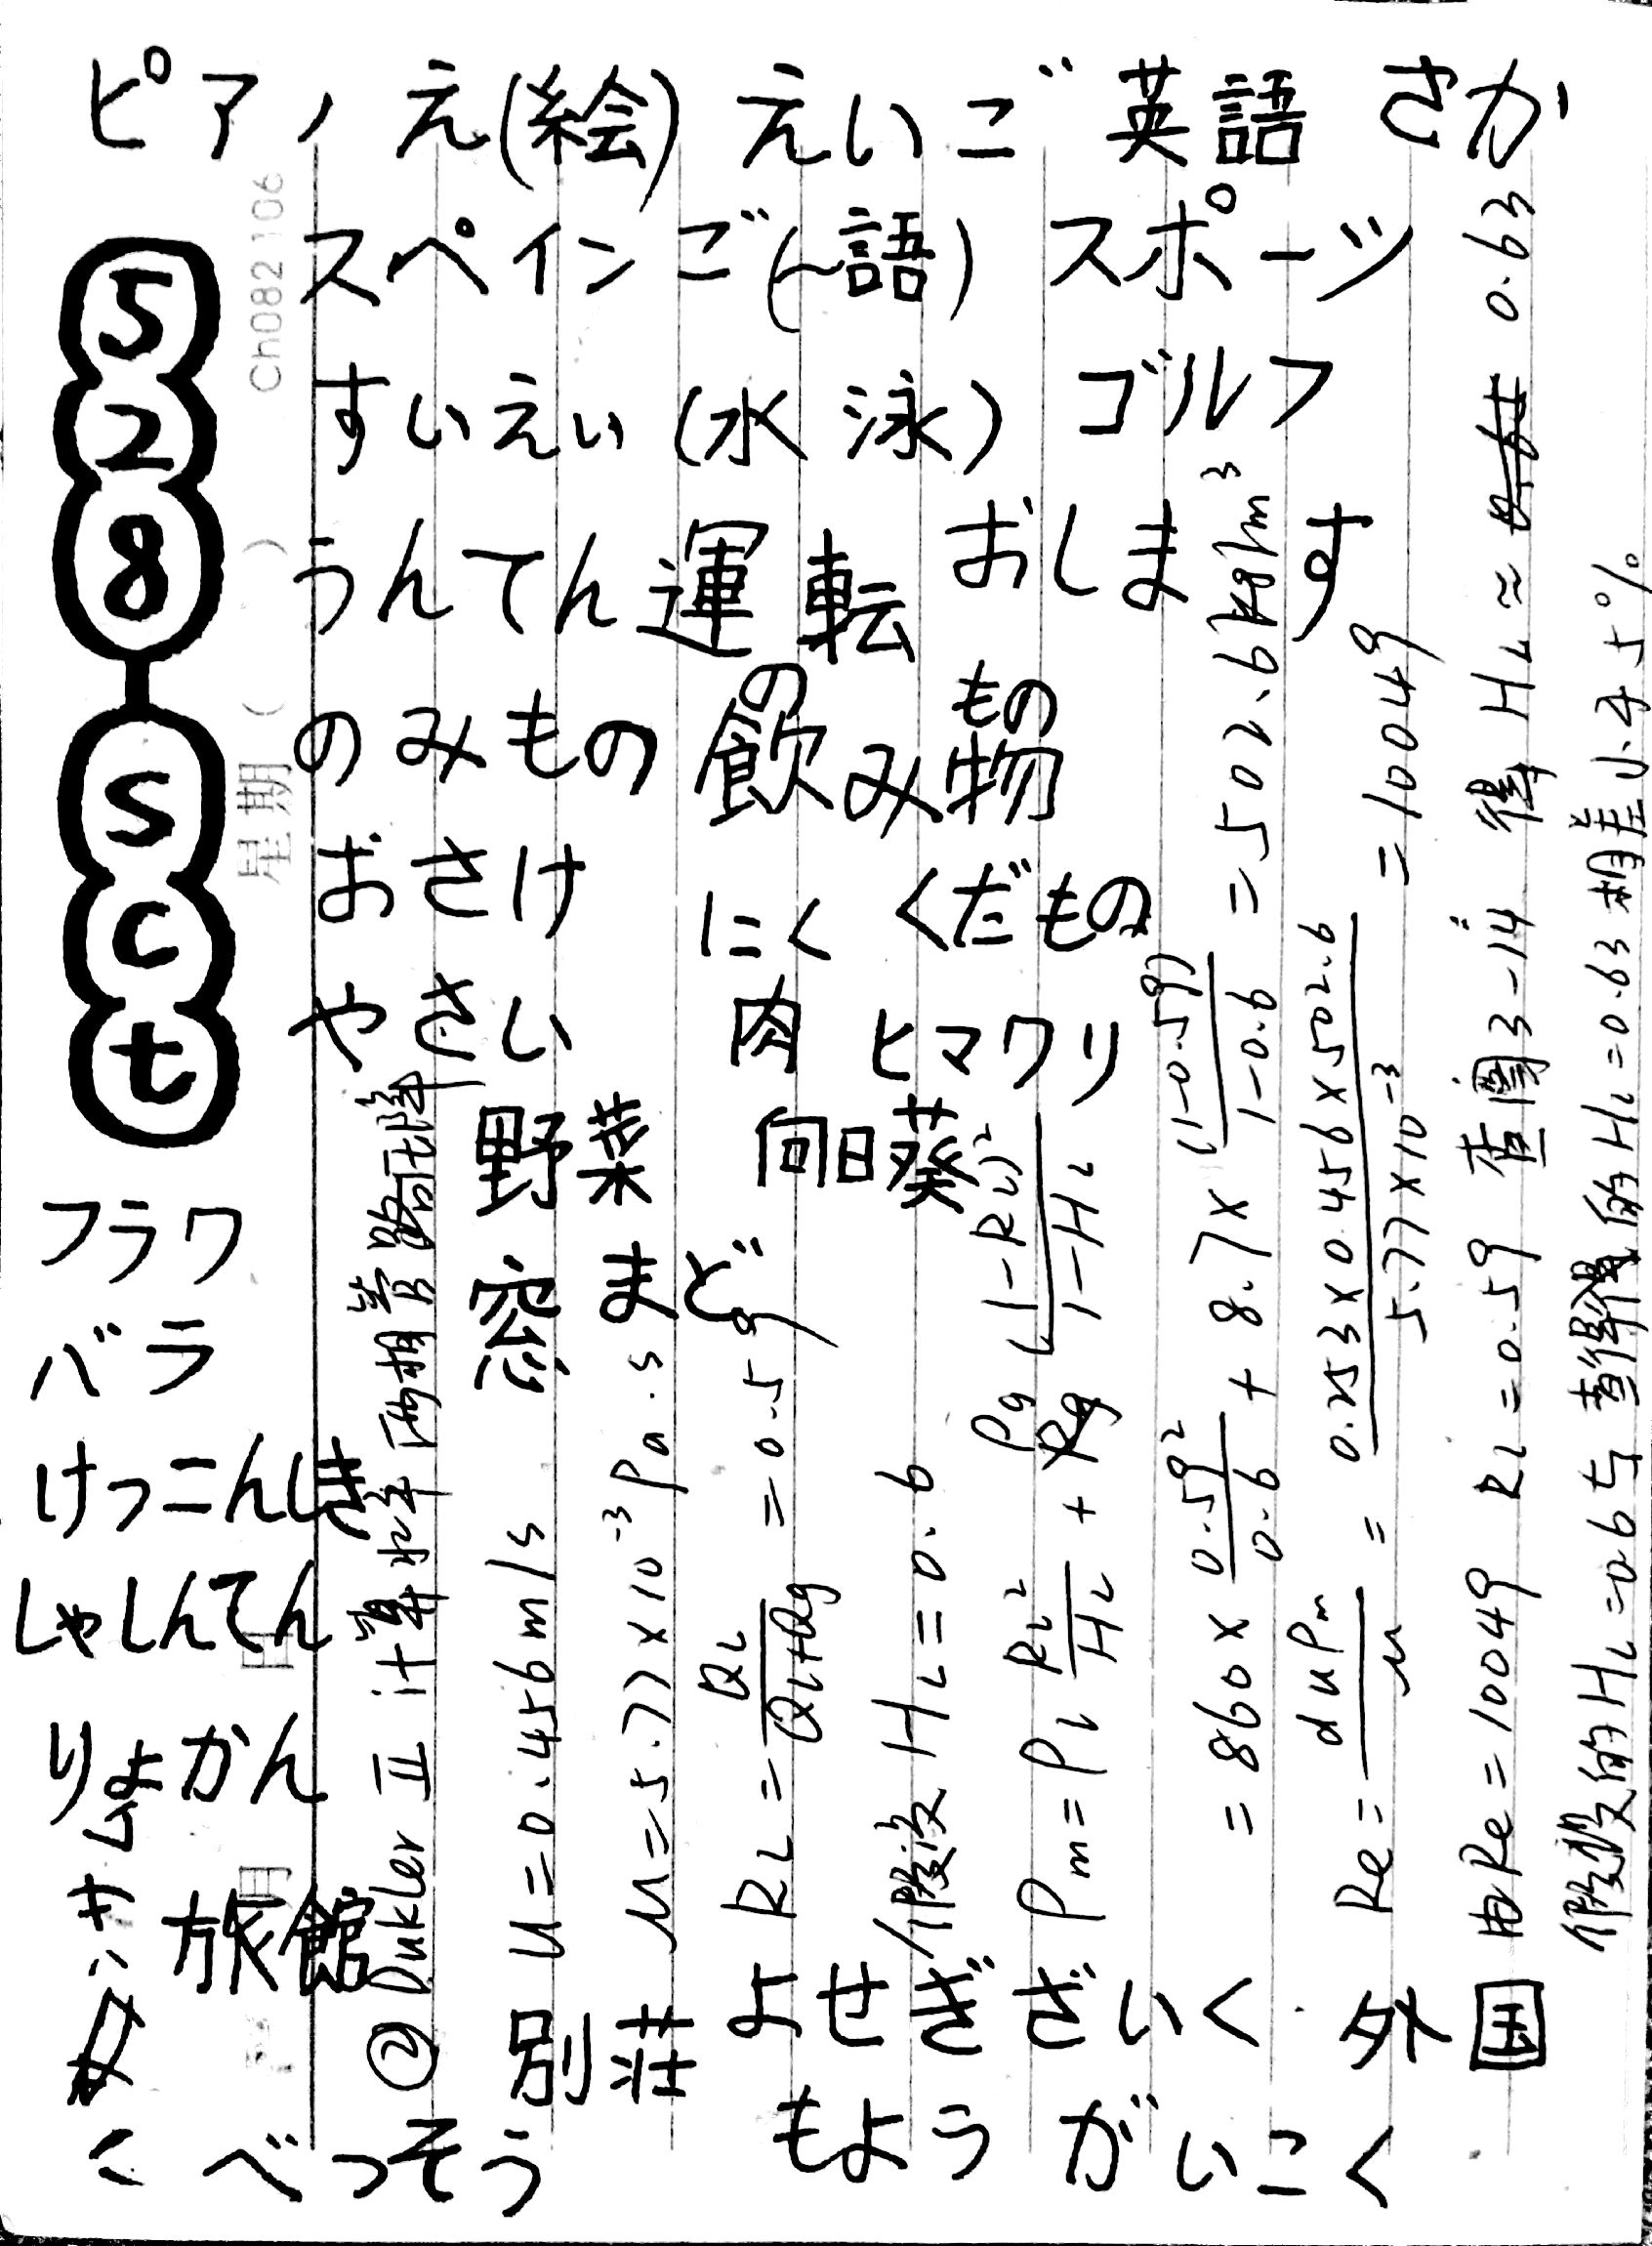 ピアノ え(絵) えいご 英語 さか
スペインご(〜語) スポーツ
すいえい(水泳) ゴルフ
うんてん 運転 おします
のみもの 飲み物
の もの
おさけ にく くだもの
やさい 肉 ヒマワリ
野菜 向日葵
窓 まど
フラワ
バラ
けっこんしき
しゃしんてん
りょかん
旅館
別荘 よせぎざいく 外国
べっそう もよう がいこく
528-sct
Ch082106
星期( )
月
日
② Dukler Ⅱ 计算水平两相管路压降
u=0.456m/s
μ=5.77×10⁻³Pa.s
RL=QL/(QL+Qg)=0.59
假设HL=0.6
ρm=ρL RL²/HL + ρg (1-RL)²/(1-HL)
=860×0.59²/0.6+8.7×(1-0.59)²/(1-0.6)=502.6kg/m³
Re=duρm/μ=0.253×0.456×502.6/5.77×10⁻³=10049
由Re=10049 RL=0.59 查图3-14 得HL≈0.63
假设的HL=0.6与查得的HL=0.63相差小于5%